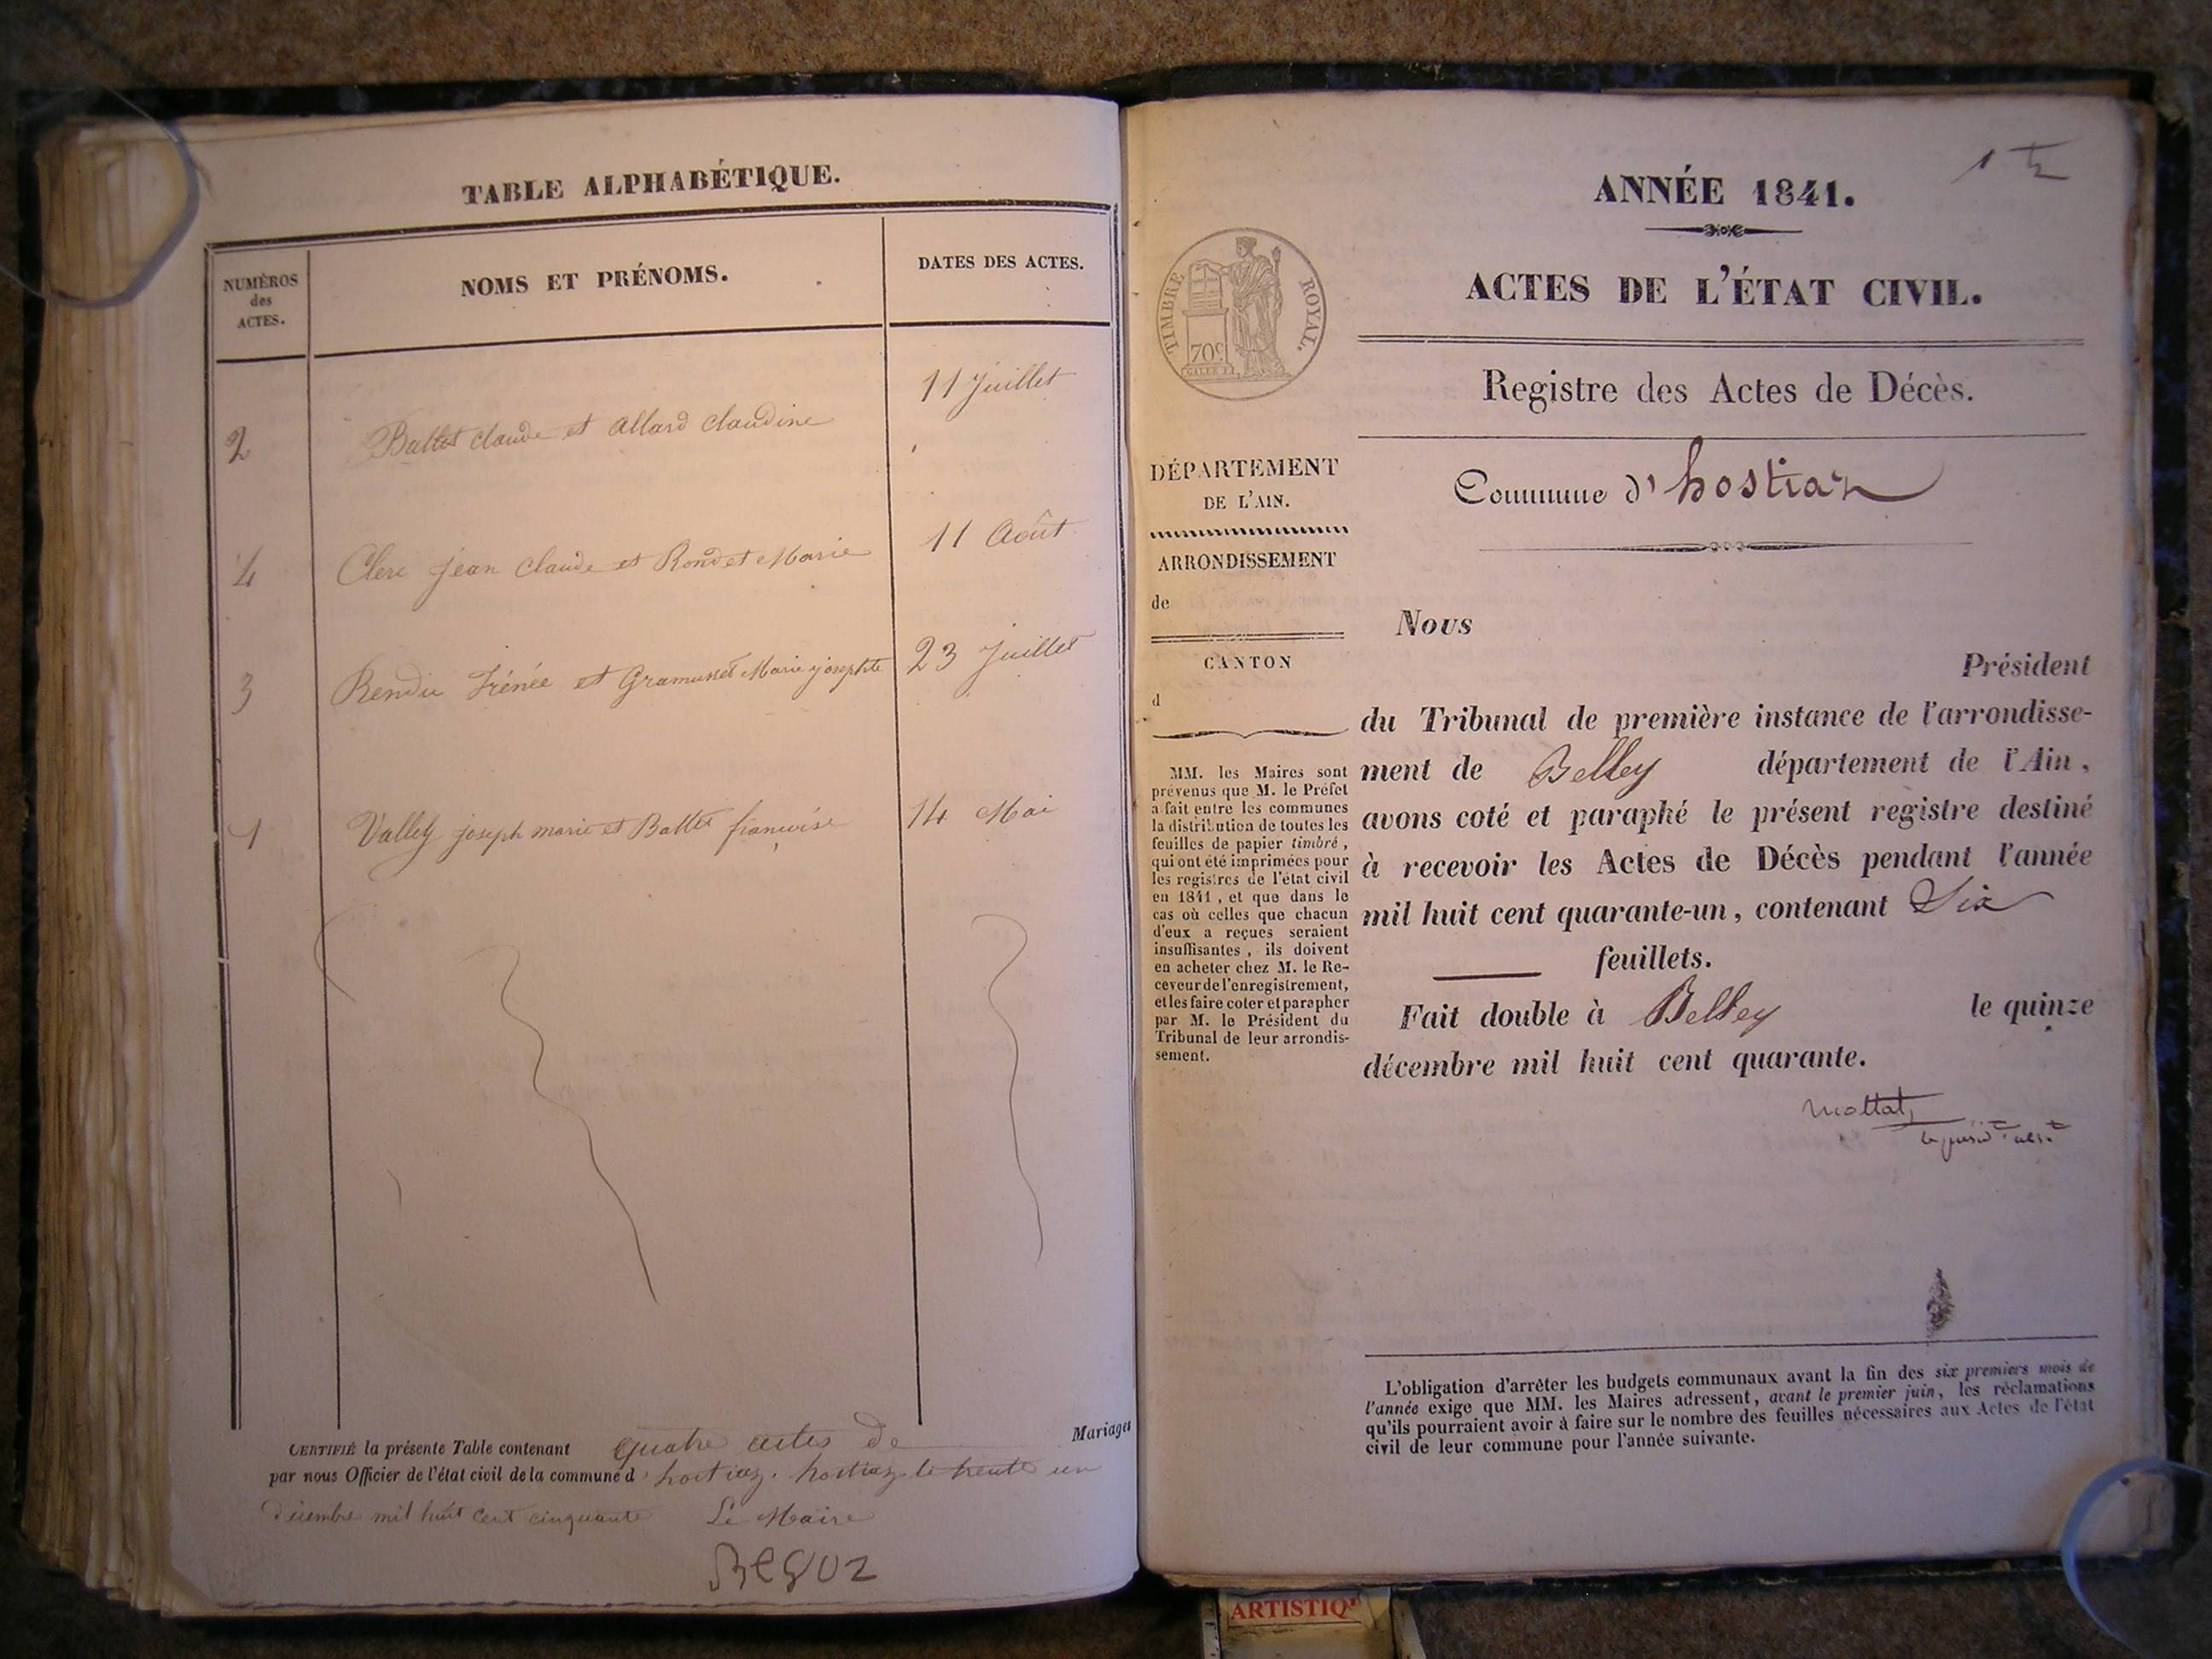 TABLE ALPHABÉTIQUE.
NUMÉROS
des
ACTES.
NOMS ET PRÉNOMS.
DATES DES ACTES.
2 Ballet claude et allard claudine 11 Juillet
4 Clerc jean Claude et Rondet Marie 11 Août
3 Rendu Irénée et Gramusset Marie josephte 23 Juillet
1 Vallet joseph marie et Ballet francoise 14 Mai
CERTIFIÉ la présente Table contenant quatre actes de Mariages
par nous Officier de l'état civil de la commune d'hostiaz. hostiaz le trente un
décembre mil huit cent cinquante Le Maire
1
ANNÉE 1841.
ACTES DE L'ÉTAT CIVIL.
TIMBRE ROYAL.
70c
Registre des Actes de Décès.
Commune d'hostiaz
DÉPARTEMENT
DE L'AIN.
ARRONDISSEMENT
de
CANTON
d
MM. les Maires sont
prévenus que M. le Préfet
a fait entre les communes
la distribution de toutes les
feuilles de papier timbré,
qui ont été imprimées pour
les registres de l'état civil
en 1841, et que dans le
cas où celles que chacun
d'eux a reçues seraient
insuffisantes, ils doivent
en acheter chez M. le Re-
ceveur de l'enregistrement,
et les faire coter et parapher
par M. le Président du
Tribunal de leur arrondis-
sement.
Nous
Président
du Tribunal de première instance de l'arrondisse-
ment de Belley département de l'Ain,
avons coté et paraphé le présent registre destiné
à recevoir les Actes de Décès pendant l'année
mil huit cent quarante-un, contenant Six
feuillets.
Fait double à Belley le quinze
décembre mil huit cent quarante.
L'obligation d'arrêter les budgets communaux avant la fin des six premiers mois de
l'année exige que MM. les Maires adressent, avant le premier juin, les réclamations
qu'ils pourraient avoir à faire sur le nombre des feuilles nécessaires aux Actes de l'état
civil de leur commune pour l'année suivante.
ARTISTIQ